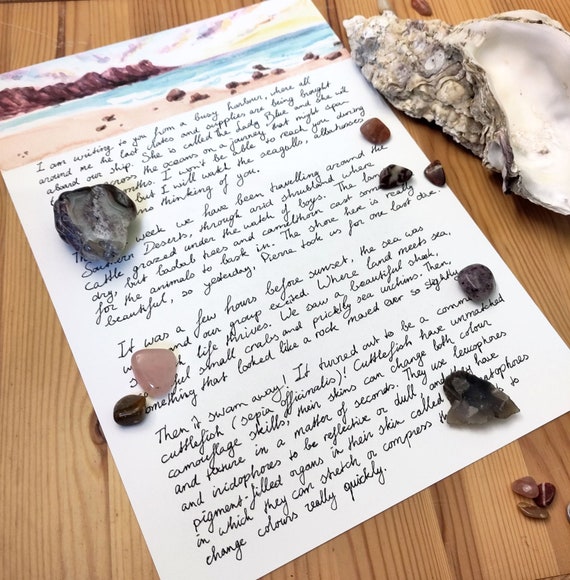 I am writing to you from a busy harbour, where all
around me the last crates and supplies are being brought
aboard our ship. She is called the Lady Blue and she will
across the oceans on a journey that might span
months. I won't be able to reach you during
but I will watch the seagulls, albatrosses
thinking of you.
week we have been travelling around the
Southern Deserts, through arid shrubland where
cattle grazed under the watch of boys. The land
dry, but baobab trees and camelthorn cast some
for the animals to bask in. The shore here is really
beautiful, so yesterday, Pierre took us for one last dive.
It was a few hours before sunset, the sea was
and our group excited. Where land meets sea,
life thrives. We saw a beautiful shark,
small crabs and prickly sea urchins. Then,
something that looked like a rock moved ever so slightly.
Then it swam away! It turned out to be a common
cuttlefish (sepia officinalis)! Cuttlefish have unmatched
camouflage skills, their skins can change both colour
and texture in a matter of seconds. They use leucophores
and iridophores to be reflective or dull and they have
pigment-filled organs in their skin called
in which they can stretch or compress to
change colours really quickly.